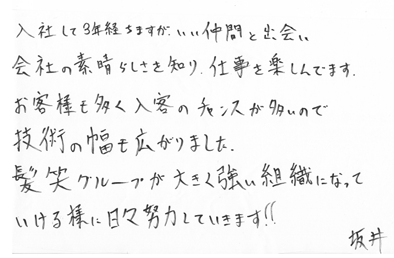 入社して3年経ちますが、いい仲間と出会い
会社の素晴らしさを知り、仕事を楽しんでます。
お客様も多く入客のチャンスが多いので
技術の幅も広がりました。
髪笑グループが大きく強い組織になって
いける様に日々努力していきます!!
坂井